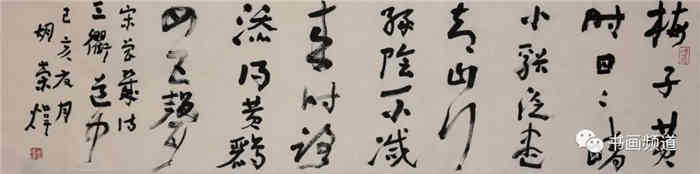 梅子黄
时日〻晴
小谿泛尽
却山行
绿阴不减
来时路
添得黄鹂
四五声
宋曾几诗
三衢道中
己亥夏月
胡崇炜
书画频道